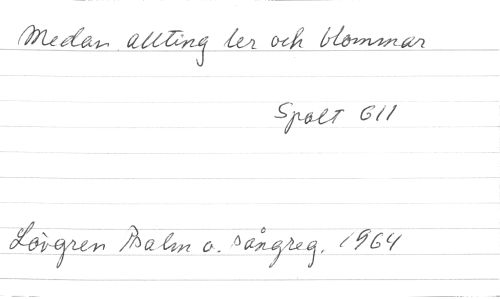 Medan allting ler och blommar
Spalt 611
Lövgren Psalm o. sångreg. 1964